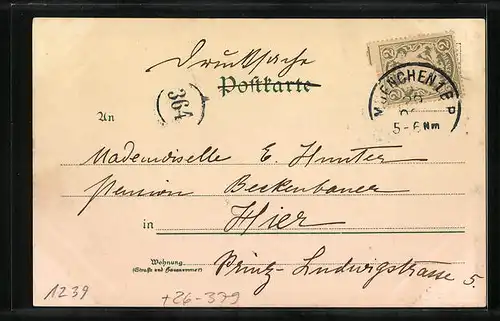 Drucksache
Postkarte
364
2
MUENCHEN I E P
5-6 Nm
An
Mademoiselle E. Hunter
Pension Beckenbauer
in Hier
Wohnung
(Straße und Hausnummer)
Prinz-Ludwigstrasse 5.
1239
+26-379